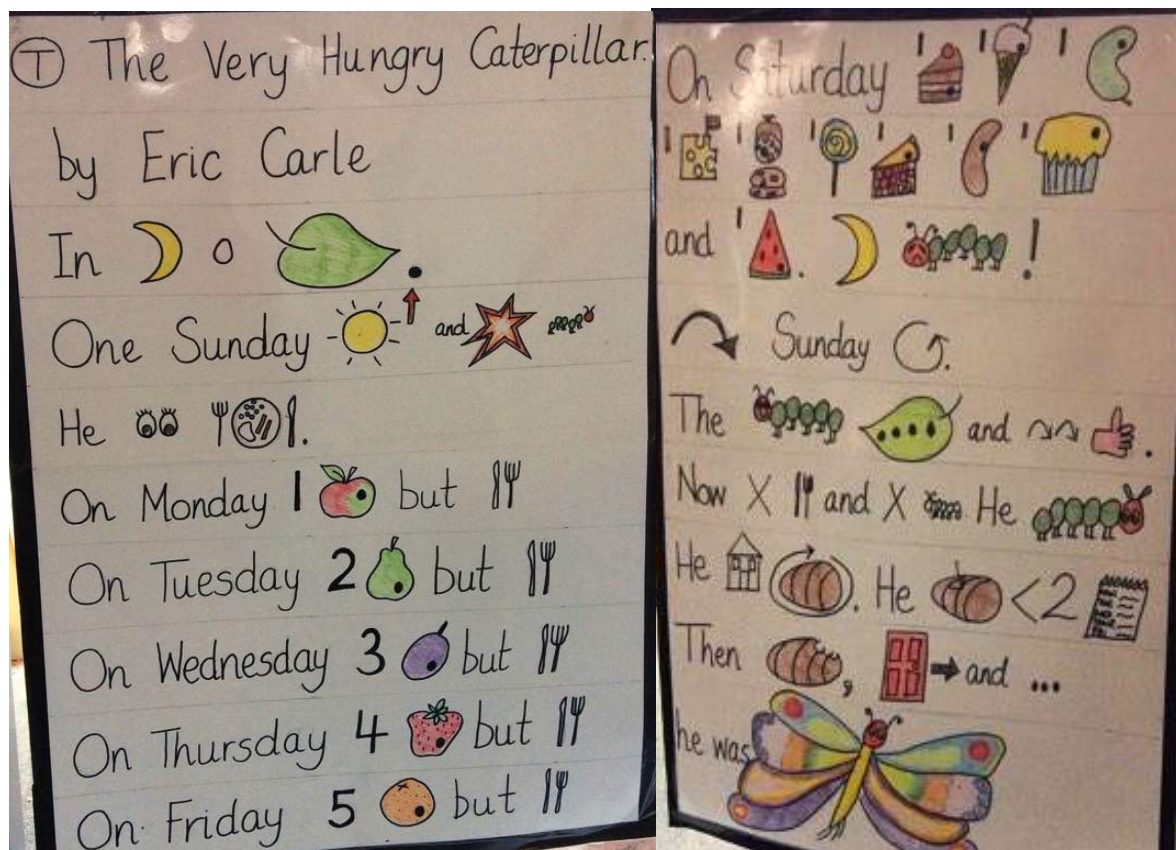 T The Very Hungry Caterpillar.
by Eric Carle
In
One Sunday and
He .
On Monday 1 but
On Tuesday 2 but
On Wednesday 3 but
On Thursday 4 but
On Friday 5 but
On Saturday 1 1 1
1 1 1 1 1 1
and 1 . !
Sunday .
The and .
Now X and X He
He . He <2
Then , and ...
he was